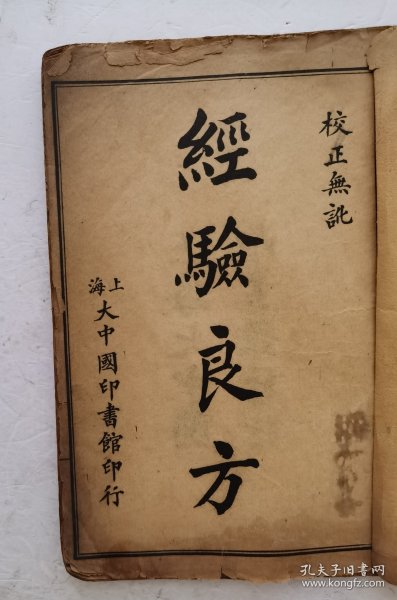 校正無訛
經驗良方
上海大中國印書館印行
孔夫子旧书网
www.kongfz.com